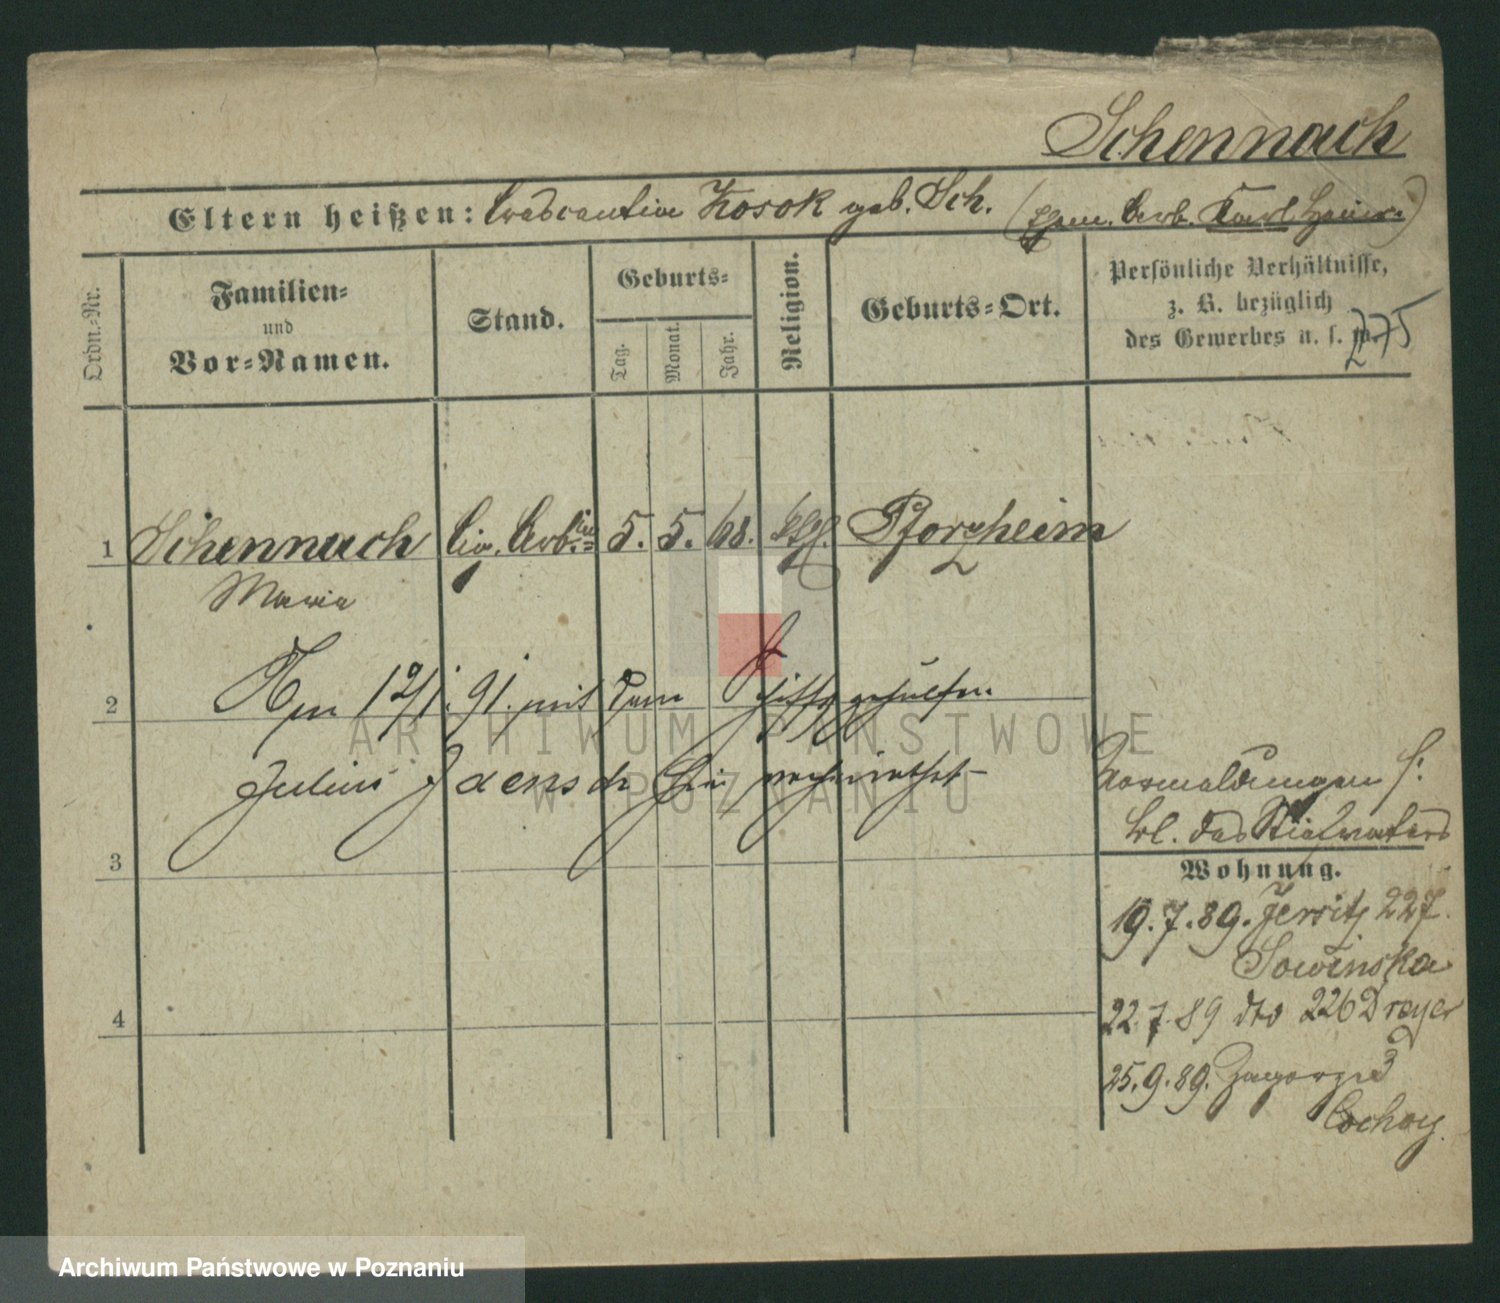 Schennach
Eltern heißen: Crescentia Kosok geb. Sch. (Ehem. Arb. Karl
Ordn.-Nr.
Familien-
und
Vor-Namen.
Stand.
Geburts-
Tag.
Monat.
Jahr.
Religion.
Geburts-Ort.
Persönliche Verhältnisse,
z. B. bezüglich
des Gewerbes u. s. w.
275
1 Schennach Cig. Arb.in 5. 5. 68. kth. Pforzheim
Maria
2 Am 12/1. 91. mit dem
Julius hier verheirathet
Anmeldungen s.
bl. des Stiefvaters
3
Wohnung.
19.7.89. Jersitz 227.
Sowinska
22.7.89 dto 226 Dreyer
4
25.9.89. Zagorze 3
Cochoy.
ARCHIWUM PAŃSTWOWE
W POZNANIU
Archiwum Państwowe w Poznaniu